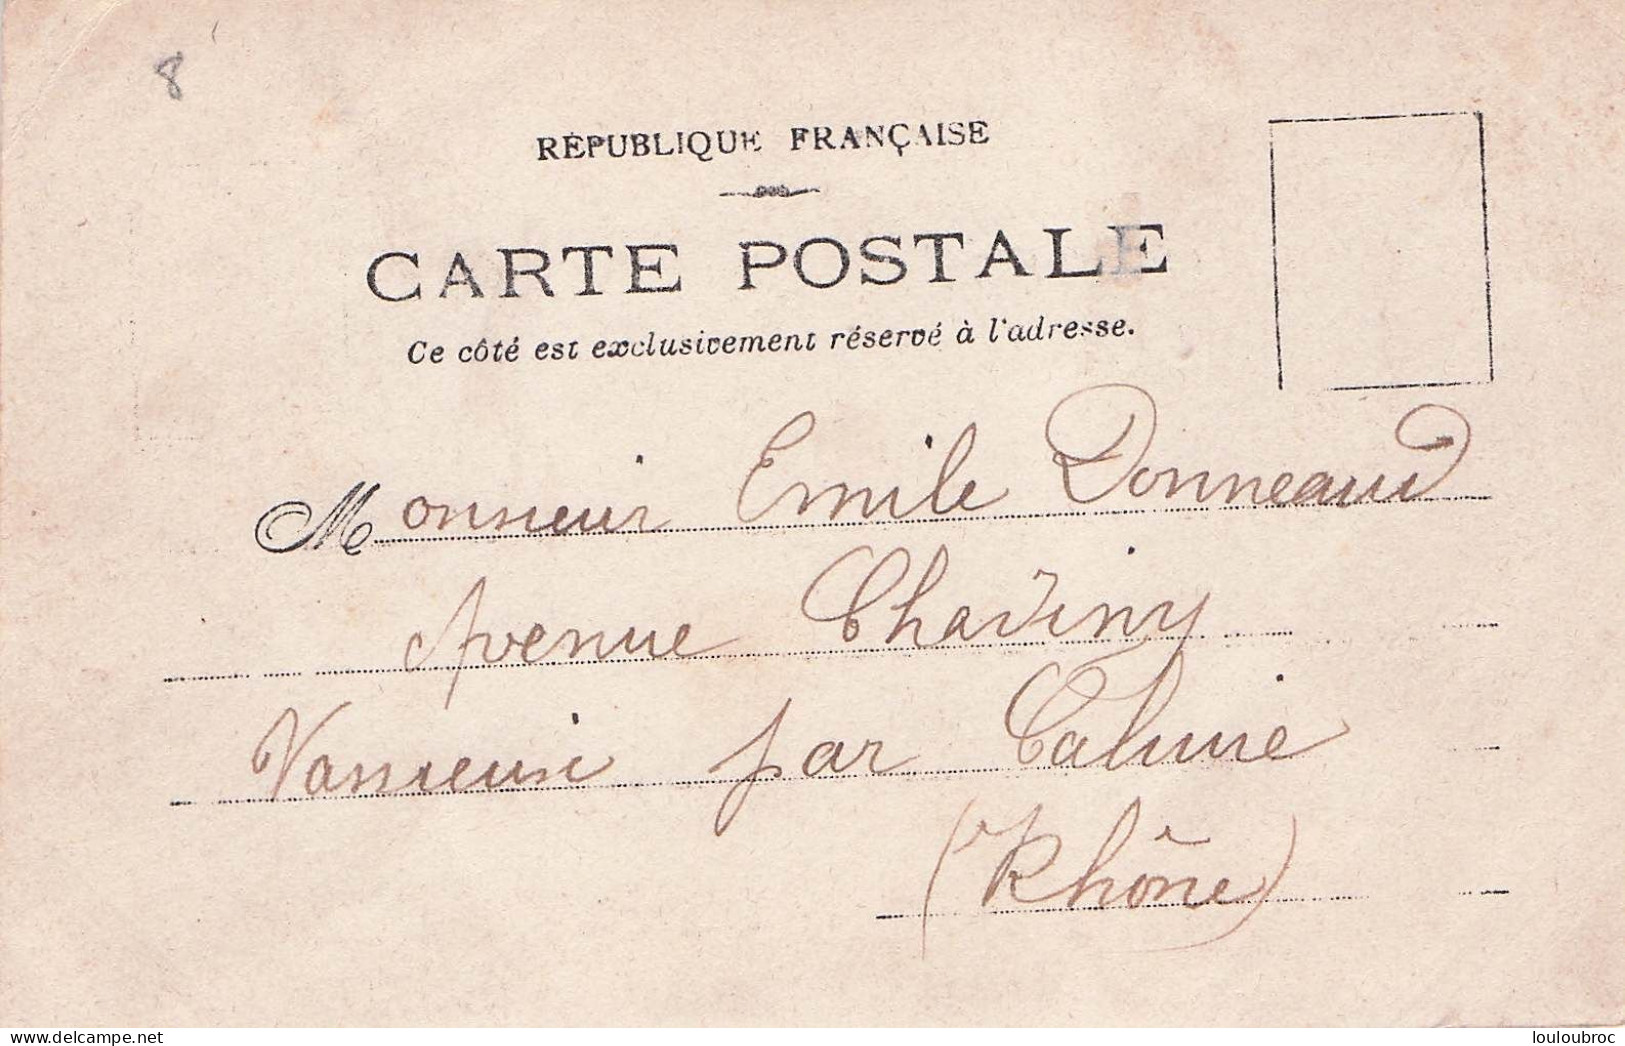 8
RÉPUBLIQUE FRANÇAISE
CARTE POSTALE
Ce côté est exclusivement réservé à l'adresse.
Monsieur Emile Donneaud
Avenue Chaviny
Vassieux par Caluire
(Rhône)
www.delcampe.net
louloubroc